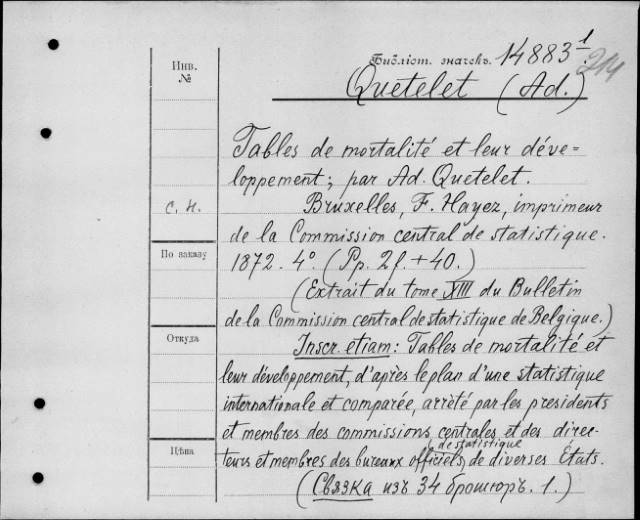 Библіот. значекъ. 14883 1/1.
214
Инв.
№
Quetelet (Ad.)
Tables de mortalité et leur déve-
loppement; par Ad. Quetelet.
С. И.
Bruxelles, F. Hayez, imprimeur
de la Commission central de statistique.
По заказу
1872. 4º. (Pp. 2 f. + 40.)
(Extrait du tome XIII du Bulletin
de la Commission central de statistique de Belgique.)
Откуда
Inscr. etiam: Tables de mortalité et
leur développement, d'après le plan d'une statistique
internationale et comparée, arrèté par les presidents
et membres des commissions centrales et des direc-
de statistique
Цѣна
teurs et membres des bureaux officiels, de diverses États.
(Связка изъ 34 брошюръ. 1.)